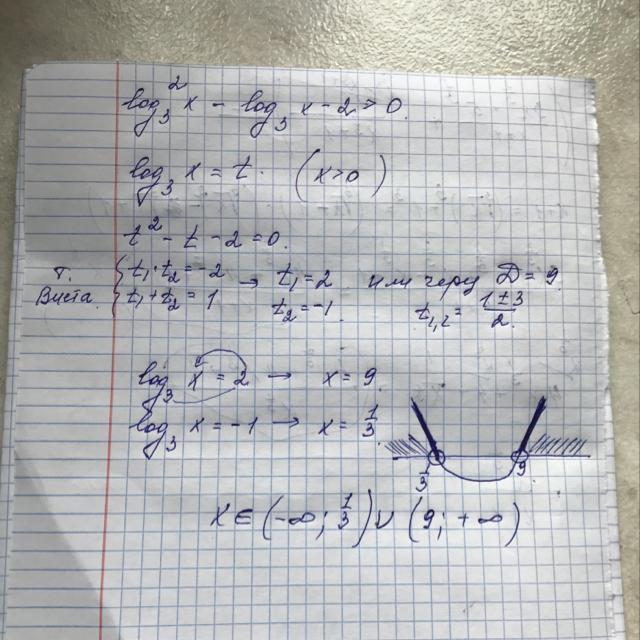 log₃²x − log₃ x − 2 > 0.
log₃ x = t. (x>0)
t² − t − 2 = 0.
Т. Виета. { t₁·t₂ = −2 → t₁ = 2 или через D = 9
t₁ + t₂ = 1 t₂ = −1. t₁,₂ = (1 ± 3)/2.
log₃ x = 2 → x = 9
log₃ x = −1 → x = 1/3.
1/3 9
x ∈ (−∞; 1/3) ∪ (9; +∞)